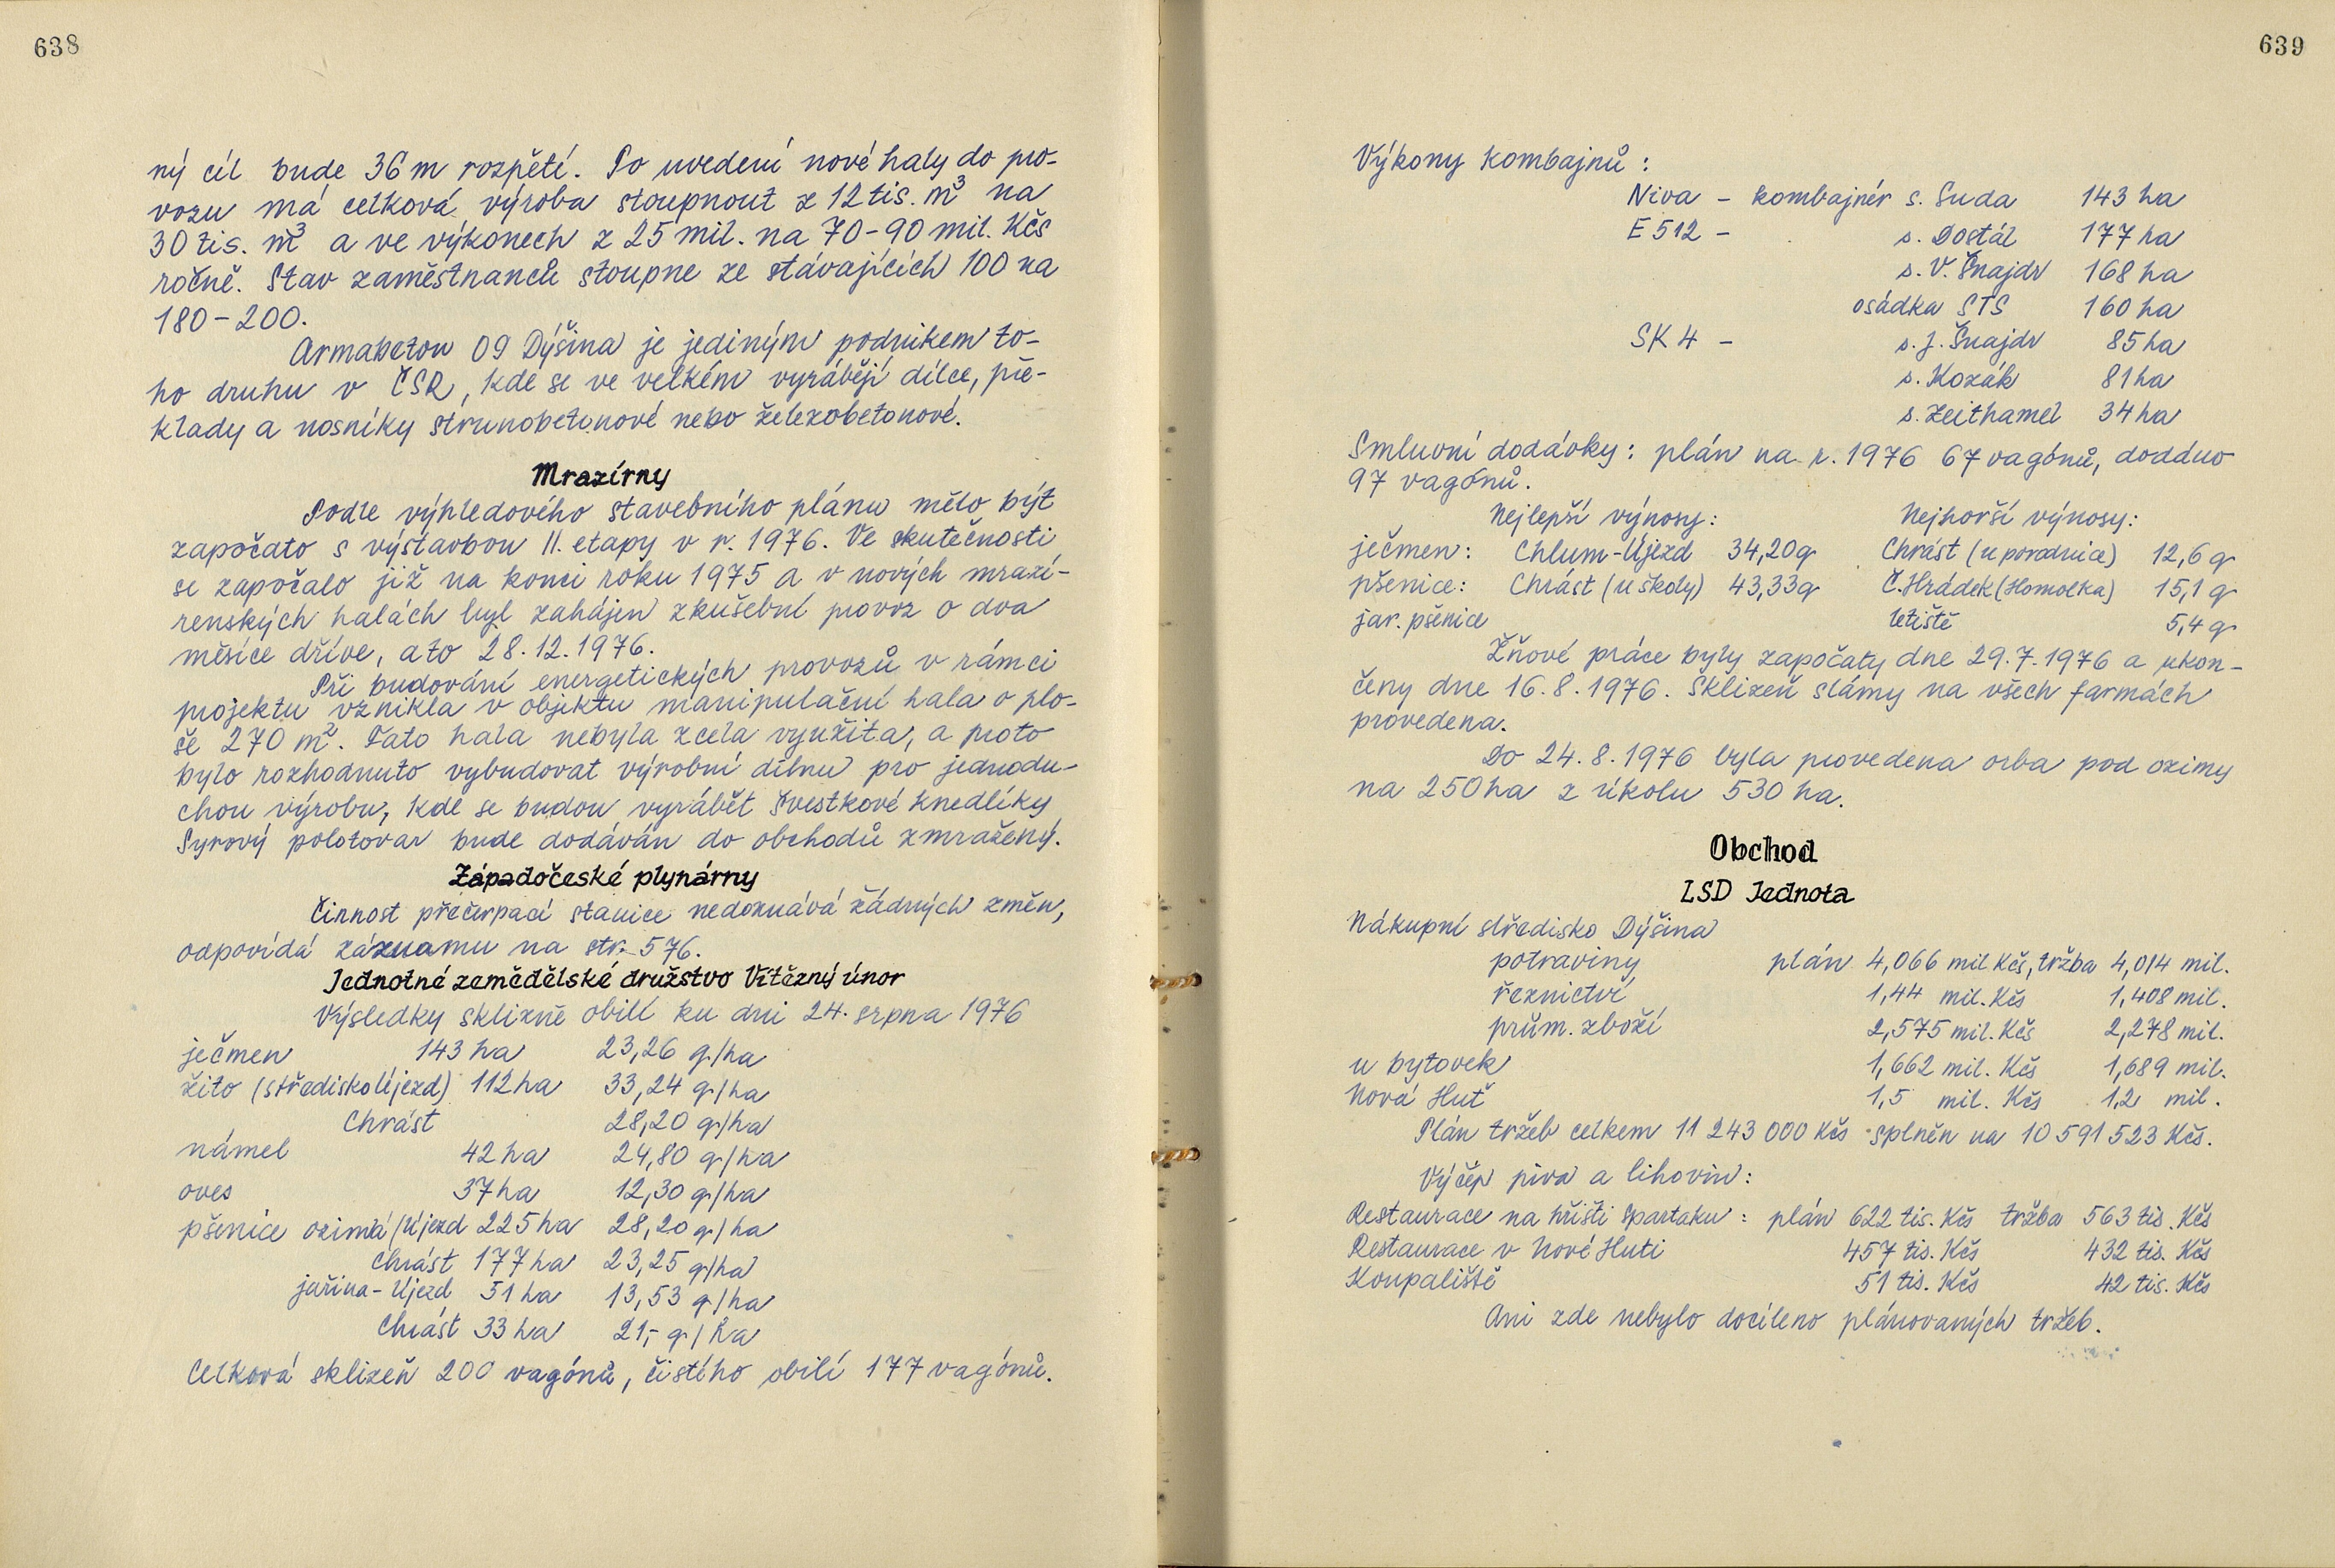 638
ný cíl bude 36 m rozpětí. Po uvedení nové haly do pro-
vozu má celková výroba stoupnout z 12 tis. m³ na
30 tis. m³ a ve výkonech z 25 mil. na 70-90 mil. Kčs
ročně. Stav zaměstnanců stoupne ze stávajících 100 na
180-200.
Armabeton 09 Dýšina je jediným podnikem to-
ho druhu v ČSR, kde se ve velkém vyrábějí dílce, pře-
klady a nosníky strunobetonové nebo železobetonové.
Mrazírny
Podle výhledového stavebního plánu mělo být
započato s výstavbou II. etapy v r. 1976. Ve skutečnosti
se započalo již na konci roku 1975 a v nových mrazí-
renských halách byl zahájen zkušební provoz o dva
měsíce dříve, a to 28.12.1976.
Při budování energetických provozů v rámci
projektu vznikla v objektu manipulační hala o plo-
še 270 m². Tato hala nebyla zcela využita, a proto
bylo rozhodnuto vybudovat výrobní dílnu pro jednodu-
chou výrobu, kde se budou vyrábět švestkové knedlíky
Syrový polotovar bude dodáván do obchodů zmražený.
Západočeské plynárny
Činnost přečerpací stanice nedoznává žádných změn,
odpovídá záznamu na str. 576.
Jednotné zemědělské družstvo Vítězný únor
Výsledky sklizně obilí ku dni 24. srpna 1976
ječmen 143 ha 23,26 q/ha
žito (středisko Újezd) 112 ha 33,24 q/ha
Chrást 28,20 q/ha
námel 42 ha 24,80 q/ha
oves 37 ha 12,30 q/ha
pšenice ozimá/Újezd 225 ha 28,20 q/ha
Chrást 177 ha 23,25 q/ha
jařina - Újezd 51 ha 13,53 q/ha
Chrást 33 ha 21,- q/ha
Celková sklizeň 200 vagónů, čistého obilí 177 vagónů.
639
Výkony kombajnů:
Niva - kombajnér s. Suda 143 ha
E 512 - s. Dostál 177 ha
s. V. Šnajdr 168 ha
osádka STS 160 ha
SK 4 - s. J. Šnajdr 85 ha
s. Kozák 81 ha
s. Zeithamel 34 ha
Smluvní dodávky: plán na r. 1976 67 vagónů, dodáno
97 vagónů.
Nejlepší výnosy: Nejhorší výnosy:
ječmen: Chlum-Újezd 34,20 q Chrást (u porodnice) 12,6 q
pšenice: Chrást (u školy) 43,33 q Č. Hrádek (Homolka) 15,1 q
jar. pšenice letiště 5,4 q
Žňové práce byly započaty dne 29.7.1976 a ukon-
čeny dne 16.8.1976. Sklizeň slámy na všech farmách
provedena.
Do 24.8.1976 byla provedena orba pod ozimy
na 250 ha z úkolu 530 ha.
Obchod
LSD Jednota
Nákupní středisko Dýšina
potraviny plán 4,066 mil Kčs, tržba 4,014 mil.
řeznictví 1,44 mil. Kčs 1,408 mil.
prům. zboží 2,575 mil. Kčs 2,278 mil.
u bytovek 1,662 mil. Kčs 1,689 mil.
Nová Huť 1,5 mil. Kčs 1,2 mil.
Plán tržeb celkem 11 243 000 Kčs splněn na 10 591 523 Kčs.
Výčep piva a lihovin:
Restaurace na hřišti Spartaku: plán 622 tis. Kčs tržba 563 tis. Kčs
Restaurace v Nové Huti 457 tis. Kčs 432 tis. Kčs
Koupaliště 51 tis. Kčs 42 tis. Kčs
Ani zde nebylo docíleno plánovaných tržeb.